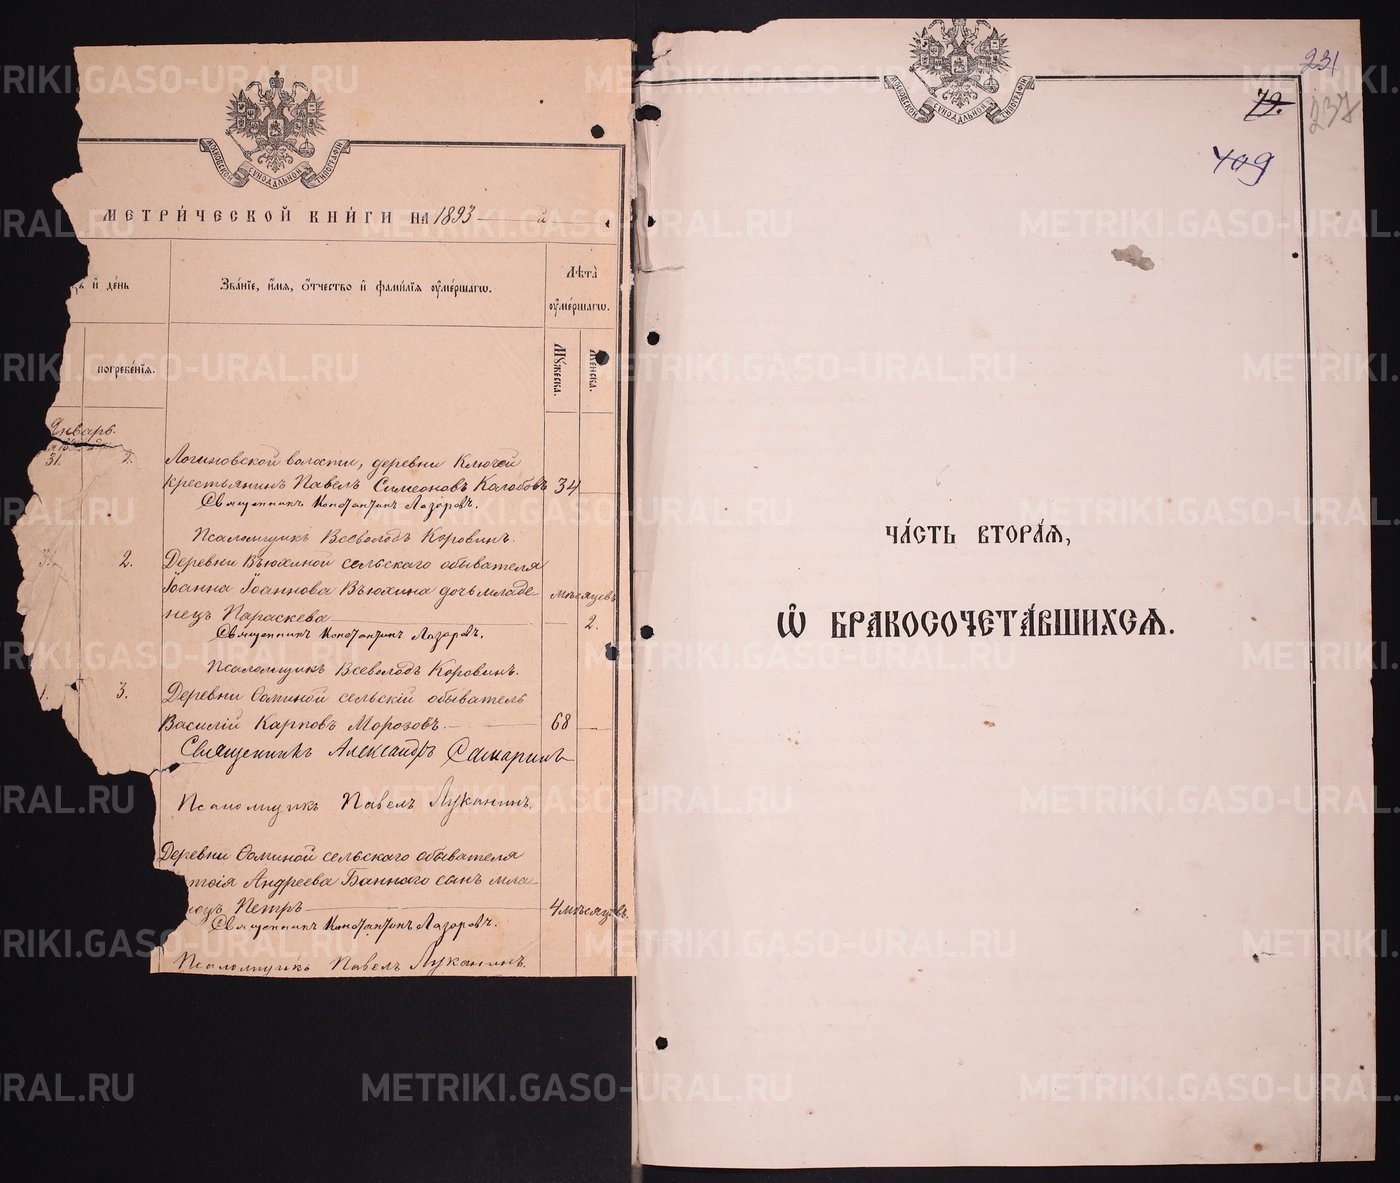 МОСКОВСКОЙ СУНОДАЛЬНОЙ ТИПОГРАФІИ
МЕТРИ́ЧЕСКОЙ КНИ́ГИ НА 1893
и҆ де́нь
Зва́нїе, и҆́мѧ, ѻ҆́тчество и҆ фами́лїѧ ᲂу҆ме́ршагѡ.
Лѣ́та ᲂу҆ме́ршагѡ.
погребе́нїѧ.
Мꙋжеска.
Женска.
Январь.
31. 2. Логиновской волости, деревни Ключей
крестьянинъ Павелъ Симеоновъ Колобовъ 34
Священникъ Константинъ Лазоревъ.
Псаломщикъ Всеволодъ Коровинъ.
2. Деревни Вьюхиной сельскаго обывателя
Іоанна Іоаннова Вьюхина дочь младе- мѣсяцевъ
нецъ Параскева 2.
Священникъ Константинъ Лазоревъ.
Псаломщикъ Всеволодъ Коровинъ.
1. 3. Деревни Соминой сельскій обыватель
Василій Карповъ Морозовъ. 68
Священникъ Александръ Самаринъ
Псаломщикъ Павелъ Луканинъ.
Деревни Соминой сельскаго обывателя
Андреева Баннаго сынъ мла-
нецъ Петръ 4 мѣсяцевъ.
Священникъ Константинъ Лазоревъ.
Псаломщикъ Павелъ Луканинъ.
МОСКОВСКОЙ СУНОДАЛЬНОЙ ТИПОГРАФІИ
231
79.
237
409
ЧА́СТЬ ВТОРА́Ѧ,
Ѽ БРАКОСОЧЕТА́ВШИХСѦ.
METRIKI.GASO-URAL.RU